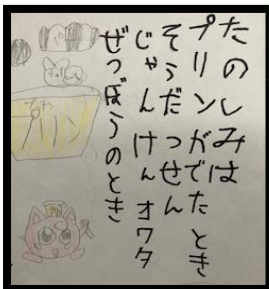 たのしみは
プリンがでたとき
そうだっせん
じゃんけんオワタ
ぜつぼうのとき